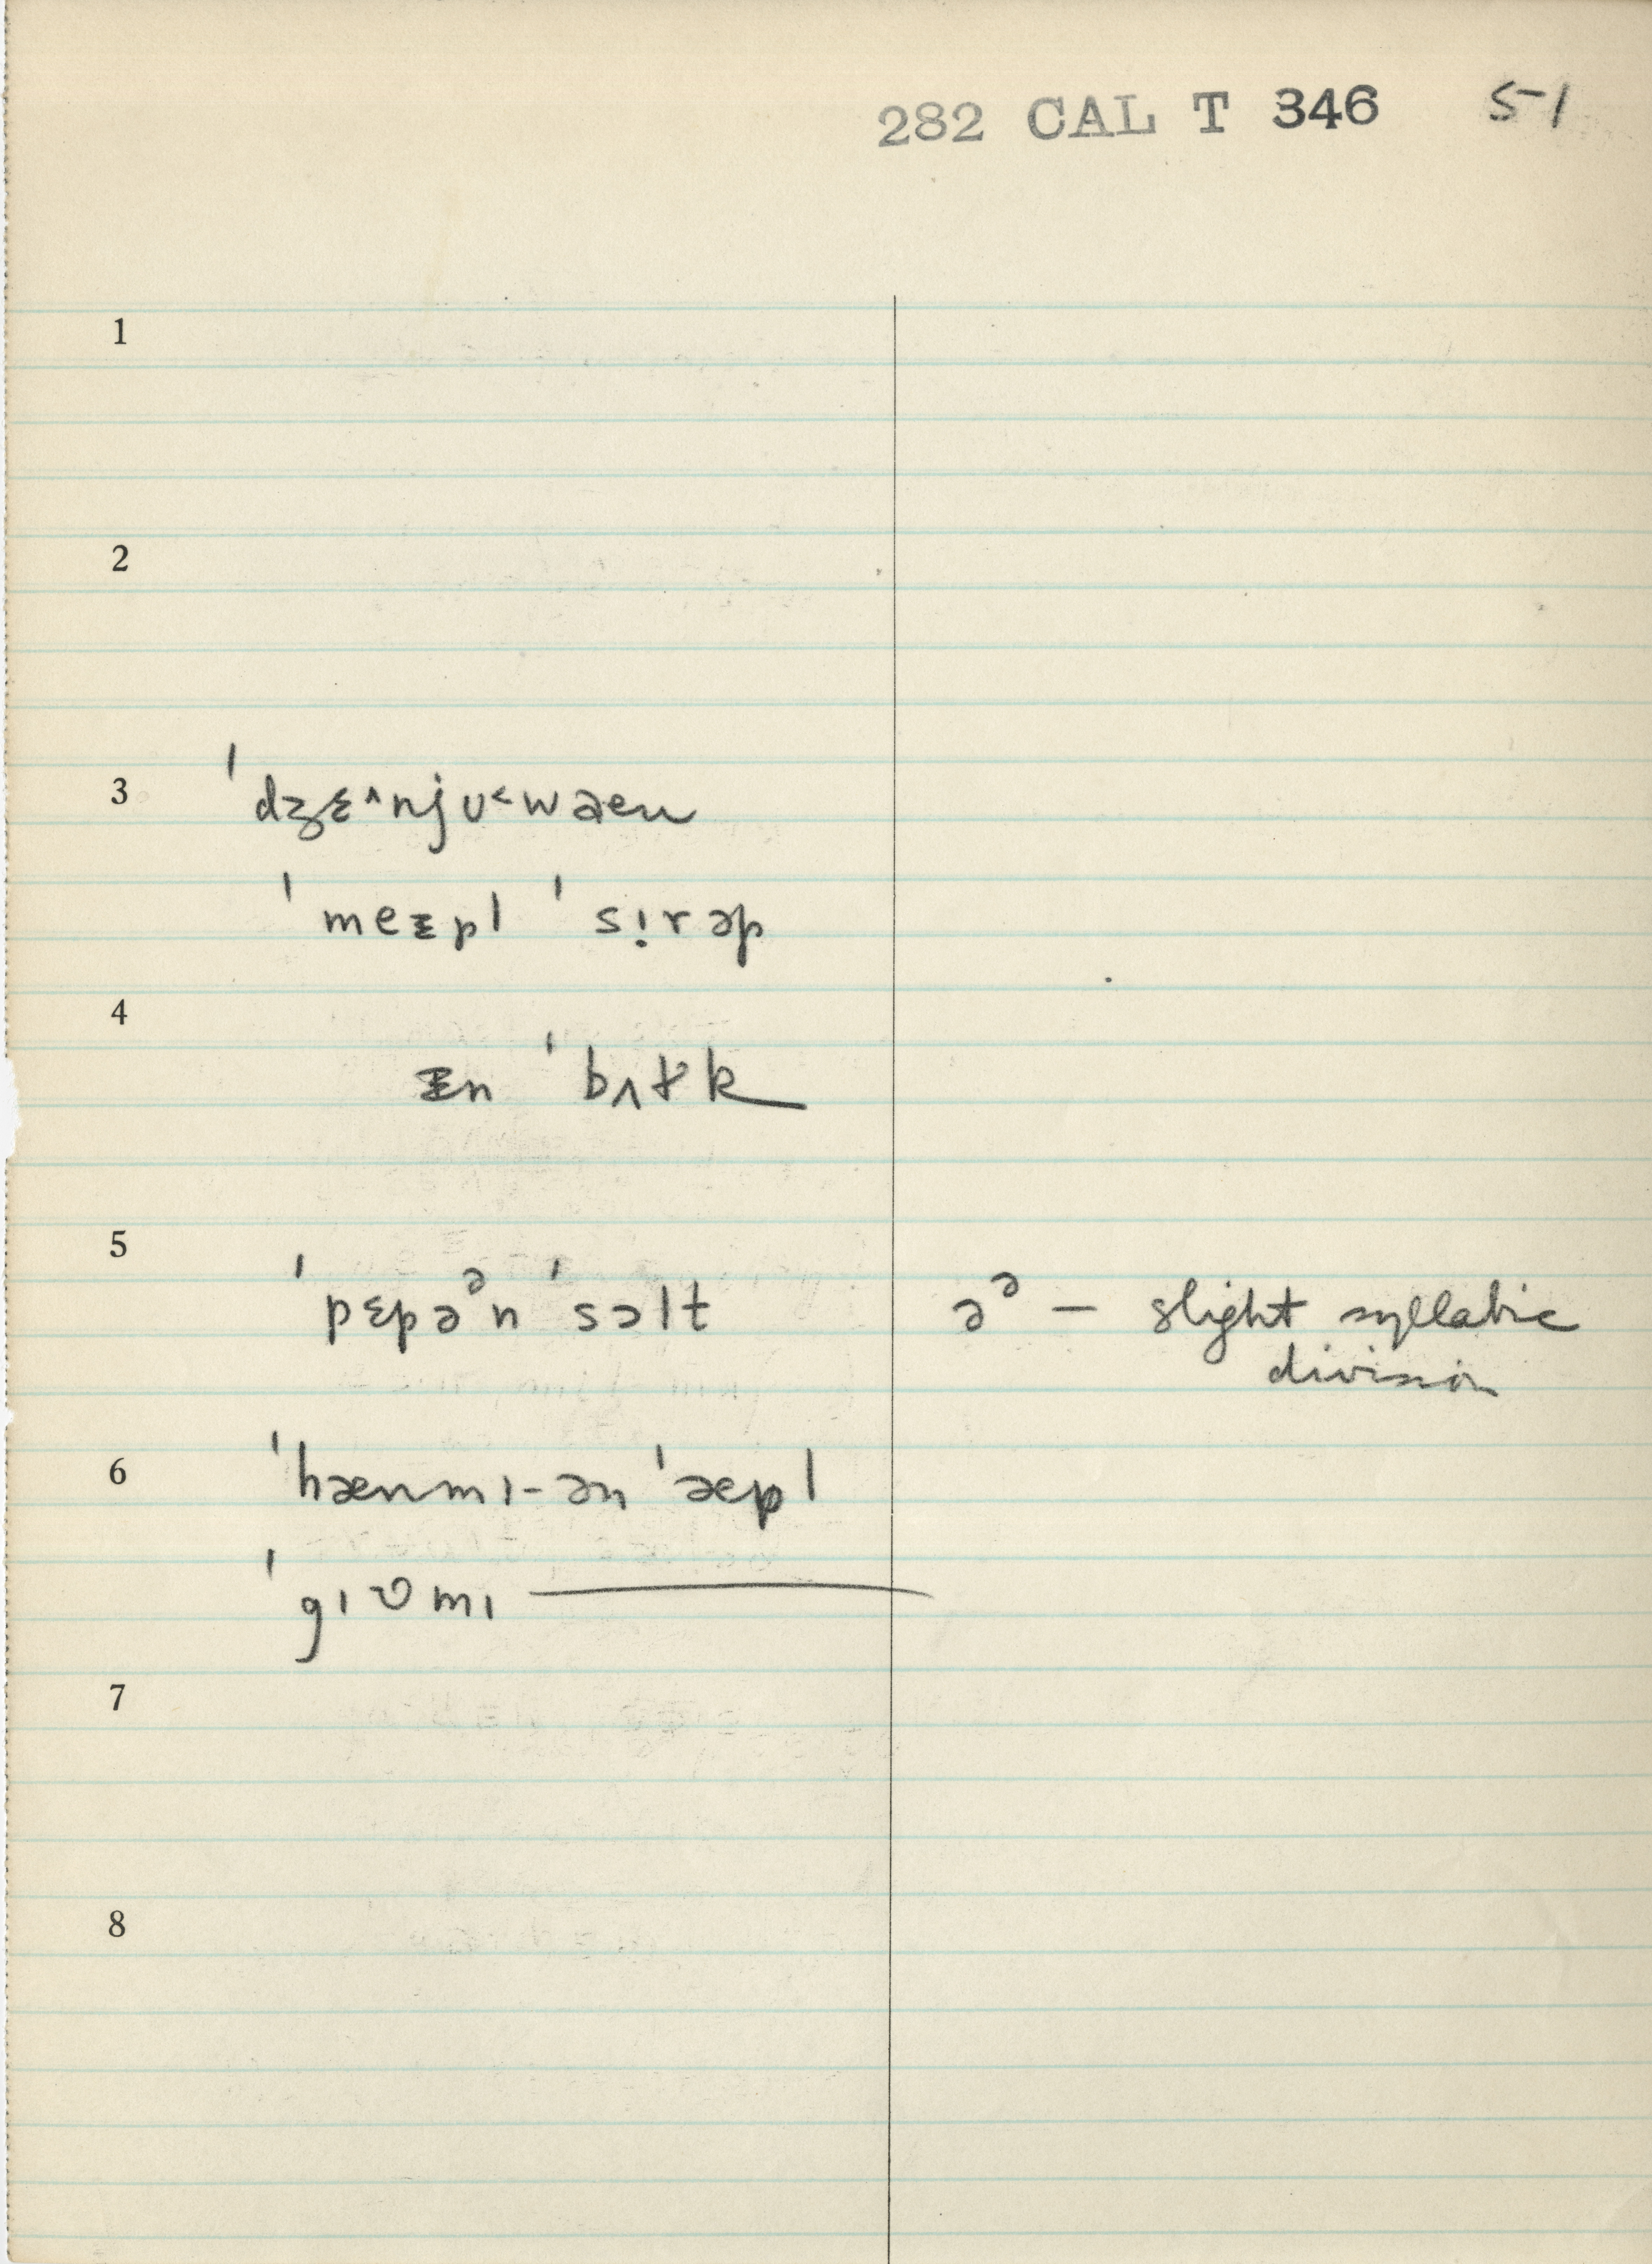 282 CAL T 346 51
1
2
3 ˈdʒɛ^njʊ˂wæn
ˈmeɛpl ˈsı̣rəp
4 ɪn ˈbʌɫk
5 ˈpɛpəᵊn ˈsɔlt əᵊ — slight syllabic
division
6 ˈhænmɪ-ən ˈæpl
ˈgɪʊmɪ ———
7
8